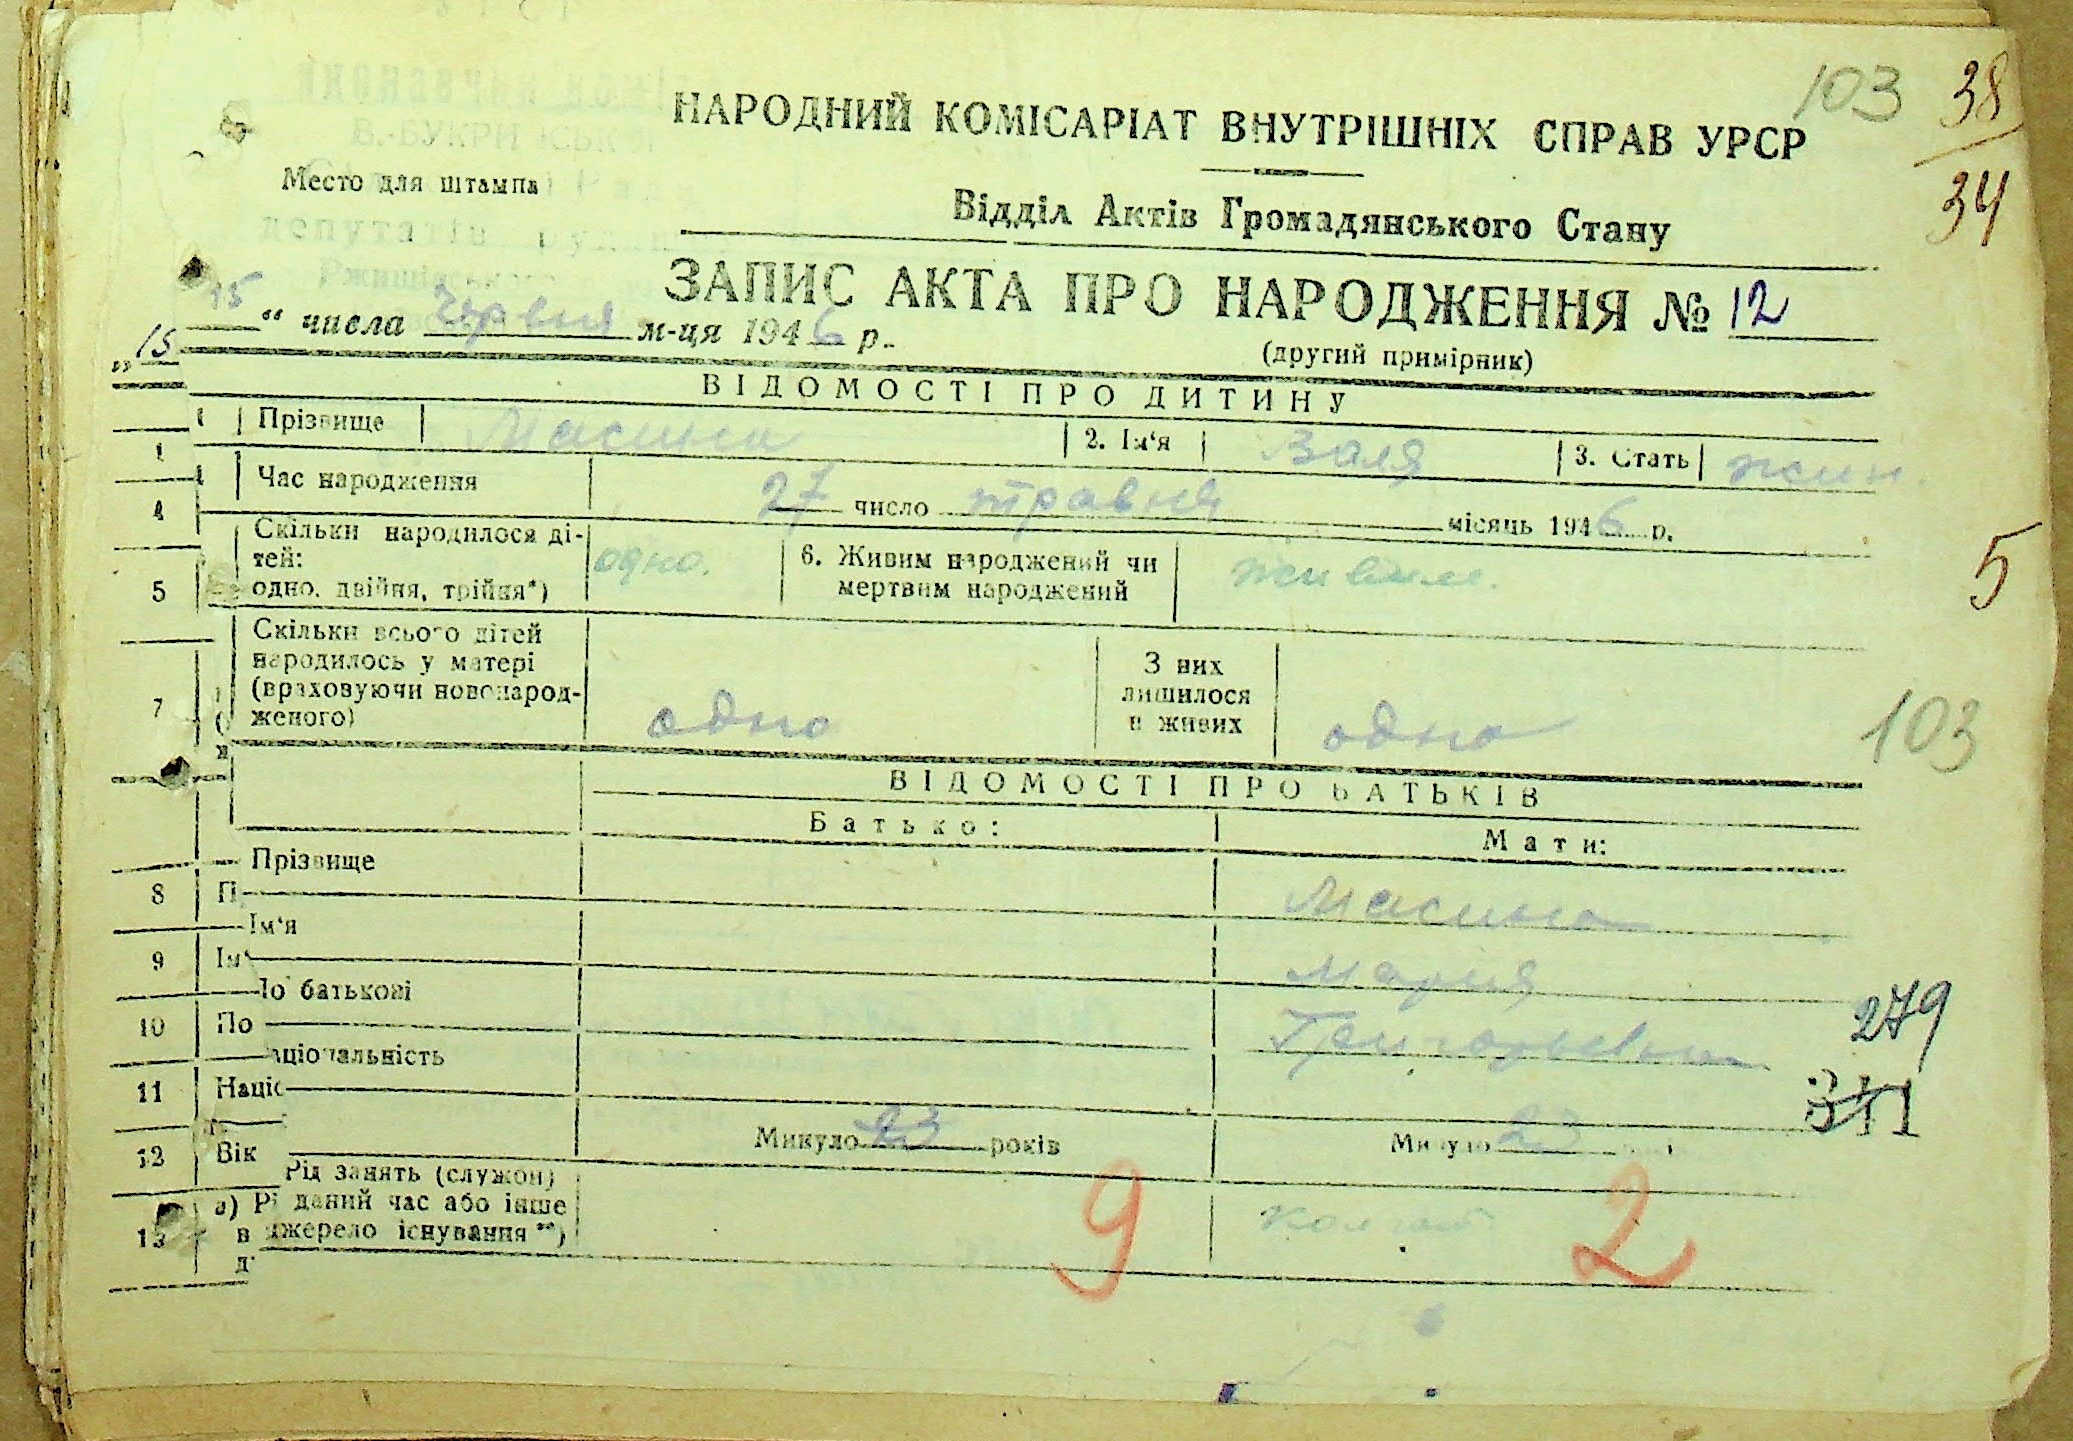 103 38
34
НАРОДНИЙ КОМІСАРІАТ ВНУТРІШНІХ СПРАВ УРСР
Место для штампа
Відділ Актів Громадянського Стану
ЗАПИС АКТА ПРО НАРОДЖЕННЯ № 12
15 “ числа Червня м-ця 1946 р.
„ 15
(другий примірник)
ВІДОМОСТІ ПРО ДИТИНУ
1 Прізвище Масина 2. Ім‘я Валя 3. Стать жін.
4 Час народження 27 число травня місяць 1946 р.
5 Скільки народилося ді-
тей:
одно, двійня, трійня*) одно. 6. Живим народжений чи
мертвим народжений живим.
5
7 Скільки всього дітей
народилось у матері
(враховуючи новонарод-
женого) одно З них
лишилося
в живих одно
103
ВІДОМОСТІ ПРО БАТЬКІВ
Батько: Мати:
Прізвище
8 П Масина
Ім‘я
9 Ім‘ Мария
По батькові
10 По Григорьевна
279
Національність
11 Націо
311
12 Вік Минуло 23 років Минуло 23
Рід занять (служби)
а) Рі даний час або інше
13 в джерело існування **) колгосп
д
9 2